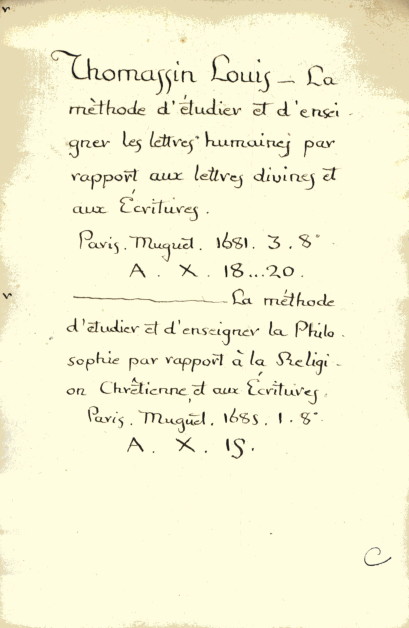 v
Thomassin Louis _ La
mèthode d'étudier et d'ensei-
gner les lettres humaines par
rapport aux lettres divines et
aux Écritures.
Paris. Muguet. 1681. 3. 8°
A. X. 18...20.
v
———— La méthode
d'étudier et d'enseigner la Philo-
sophie par rapport à la Religi-
on Chrêtienne et aux Écritures.
Paris. Muguet. 1685. 1. 8°
A. X. 15.
C